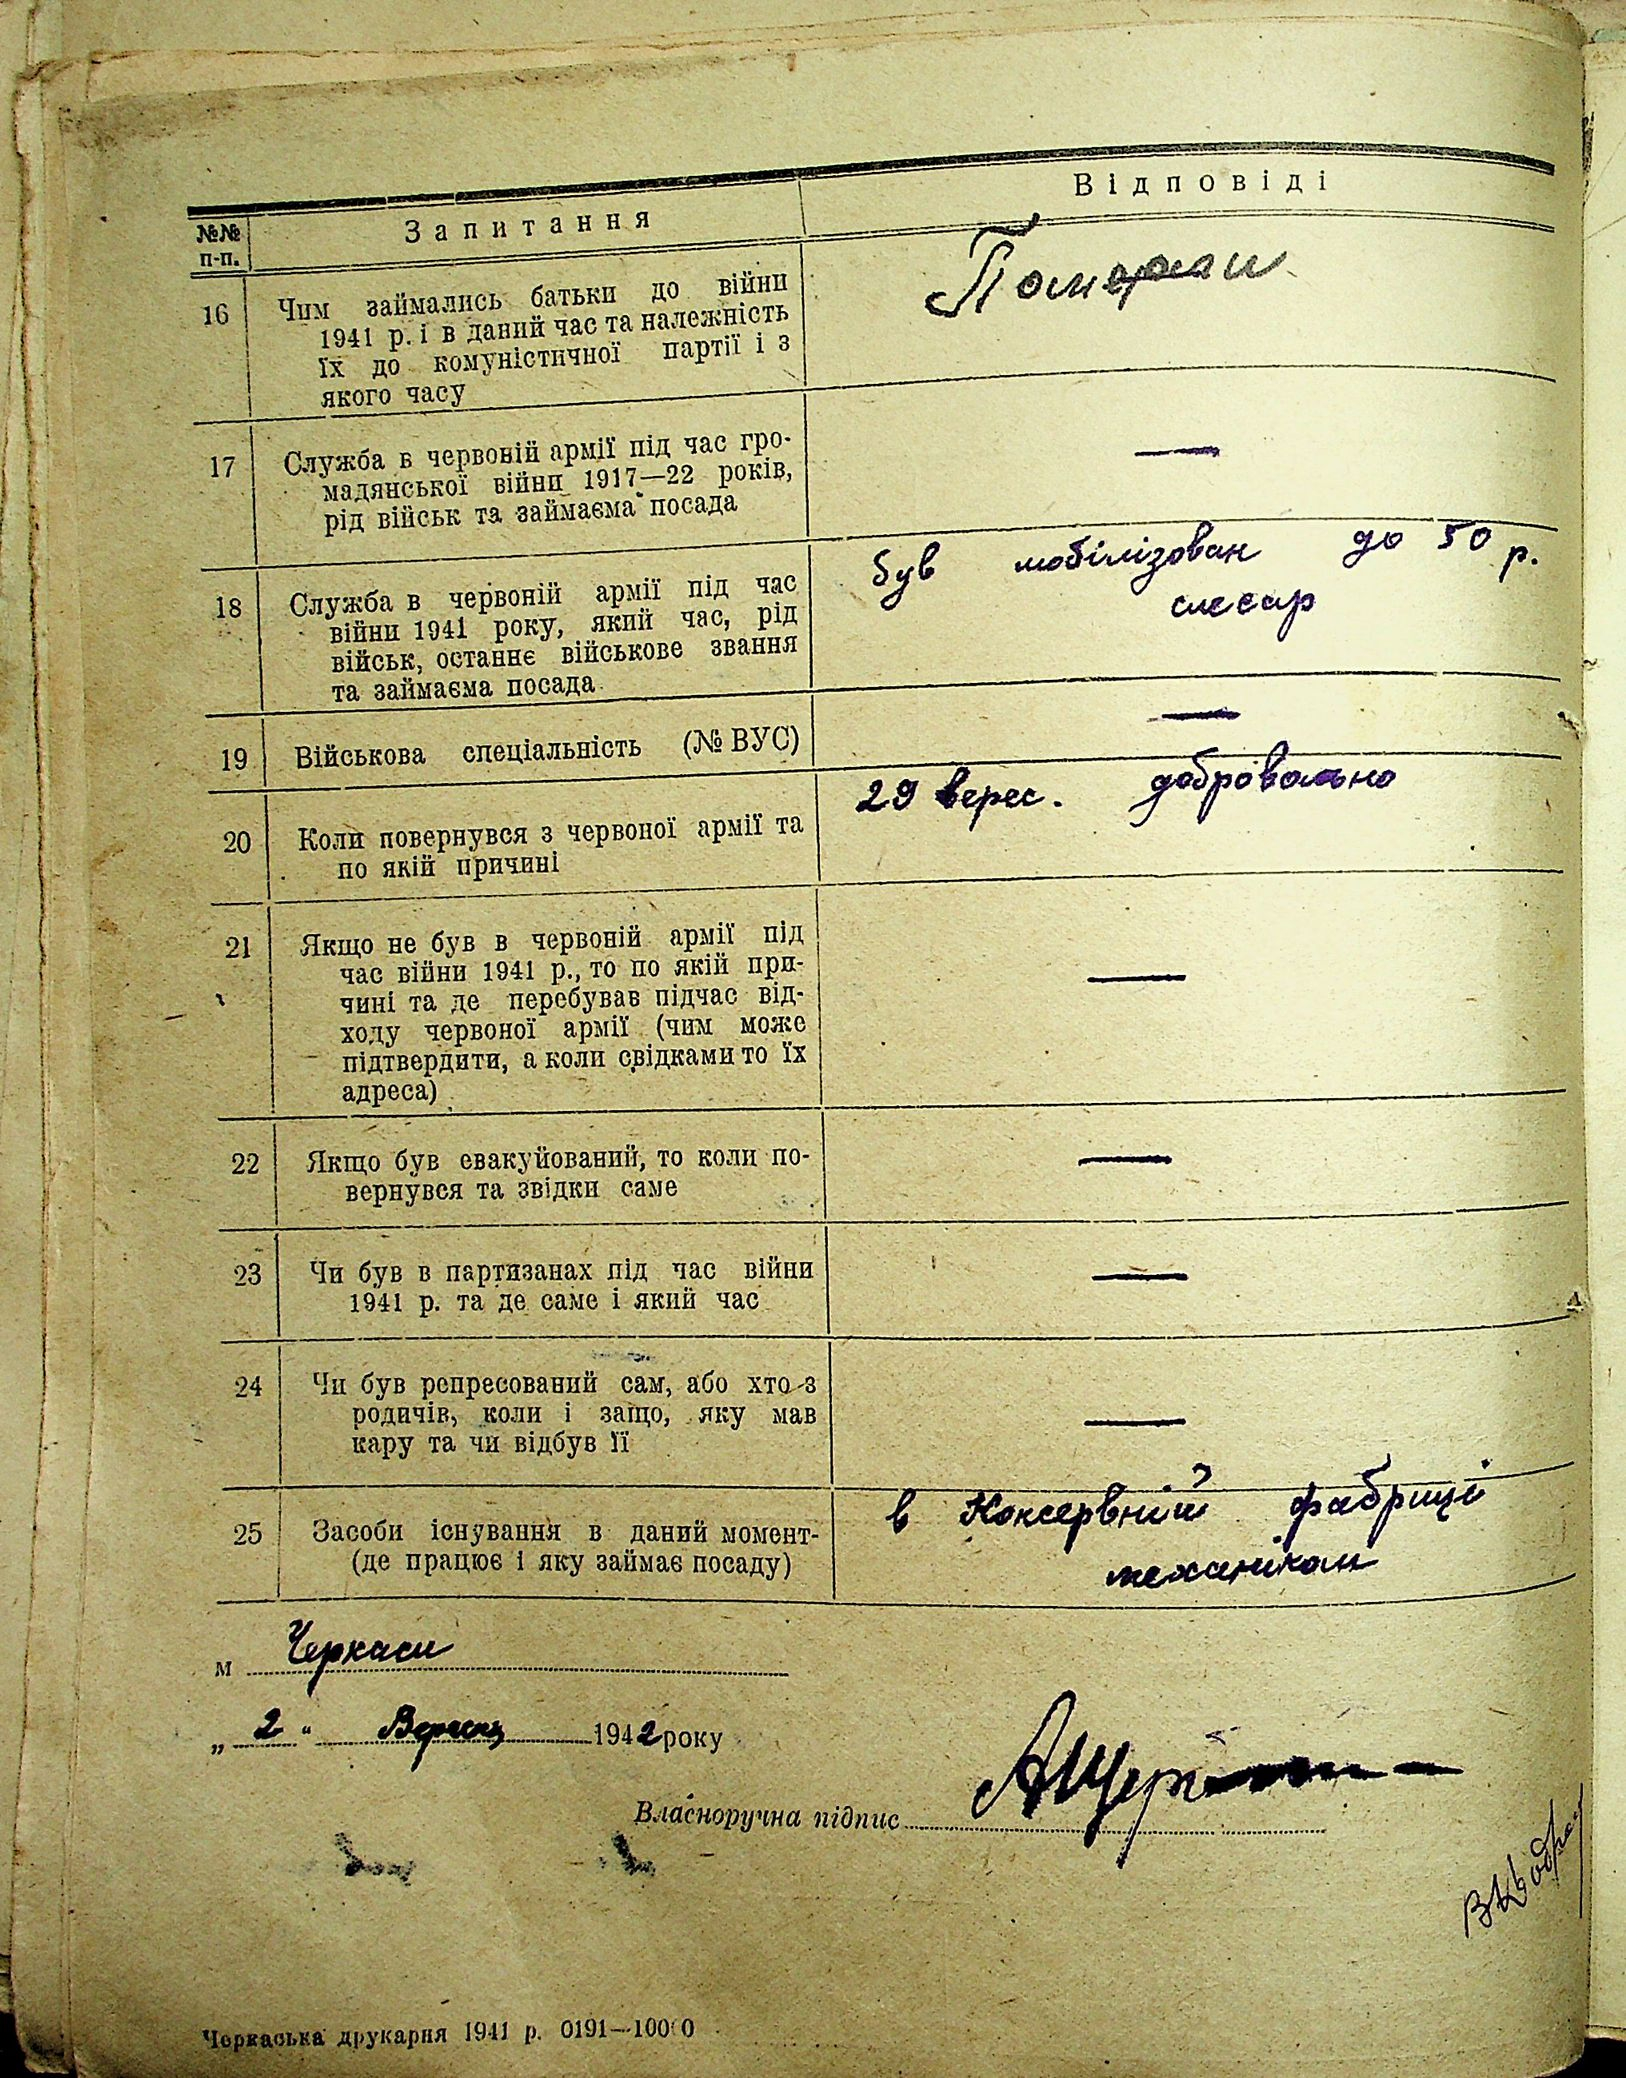 №№ п-п.
Запитання
Відповіді
16
Чим займались батьки до війни
1941 р. і в даний час та належність
їх до комуністичної партії і з
якого часу
Померли
17
Служба в червоній армії під час гро-
мадянської війни 1917—22 років,
рід військ та займаєма посада
—
18
Служба в червоній армії під час
війни 1941 року, який час, рід
військ, останнє військове звання
та займаєма посада
був мобілізован до 50 р.
слесар
19
Військова спеціальність (№ ВУС)
—
20
Коли повернувся з червоної армії та
по якій причині
29 верес. добровольно
21
Якщо не був в червоній армії під
час війни 1941 р., то по якій при-
чині та де перебував підчас від-
ходу червоної армії (чим може
підтвердити, а коли свідками то їх
адреса)
—
22
Якщо був евакуйований, то коли по-
вернувся та звідки саме
—
23
Чи був в партизанах під час війни
1941 р. та де саме і який час
—
24
Чи був репресований сам, або хто з
родичів, коли і защо, яку мав
кару та чи відбув її
—
25
Засоби існування в даний момент-
(де працює і яку займає посаду)
в Консервній фабриці
механіком
м Черкаси
„ 2 “ Вересня 1942 року
Власноручна підпис
Черкаська друкарня 1941 р. 0191—10000